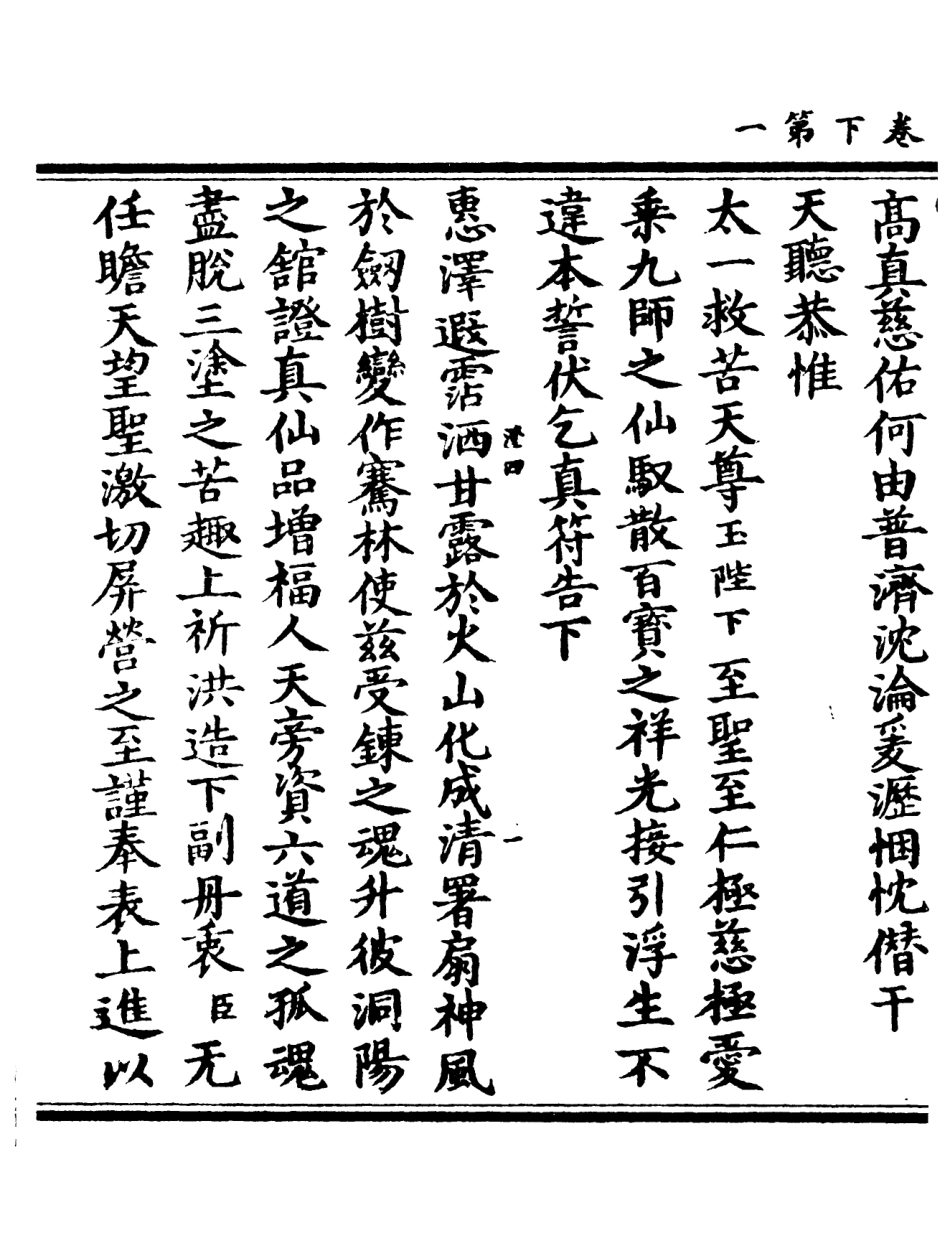 卷下第一
髙真慈佑何由普濟沈淪爰瀝悃忱僭干
天聽恭惟
太一救苦天尊玉陛下至聖至仁極慈極愛
乗九師之仙馭散百寳之祥光接引浮生不
違本誓伏乞真符告下
惠澤遐霑洒甘露於火山化成清署扇神風
於劔樹變作騫林使兹受鍊之魂升彼洞陽
之舘證真仙品增福人天旁資六道之孤魂
盡脫三塗之苦趣上祈洪造下副丹衷臣无
任瞻天望聖激切屏營之至謹奉表上進以